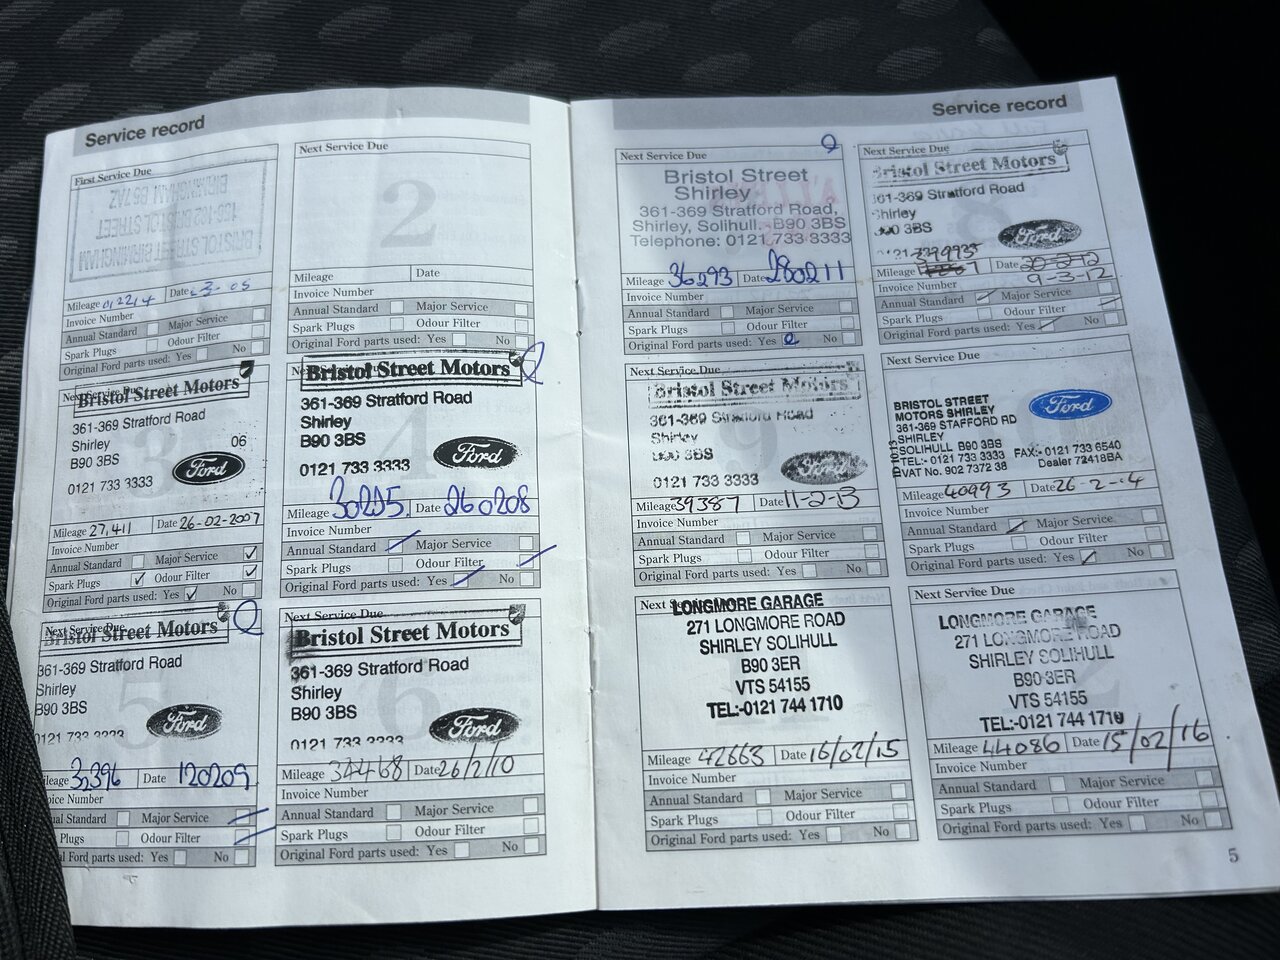 Service record
First Due
Next Service Due
2
Mileage
Date
Mileage
Date -3- 05
Invoice Number
Annual Standard
Major Service
Spark Plugs
Odour Filter
Original Ford parts used: Yes
No
Invoice Number
Annual Standard
Major Service
Spark Plugs
Odour Filter
Original Ford parts used: Yes
No
Next Service Due
Bristol Street Motors
361-369 Stratford Road
Shirley
06
B90 3BS
Ford
0121 733 3333
3
Mileage 27,411
Date 26-02-2007
Invoice Number
Annual Standard
Major Service ✓
Spark Plugs ✓
Odour Filter ✓
Original Ford parts used: Yes ✓
No
Bristol Street Motors
361-369 Stratford Road
Shirley
B90 3BS
Ford
0121 733 3333
4
Mileage 30215
Date 260208
Invoice Number
Annual Standard
Major Service
Spark Plugs
Odour Filter
Original Ford parts used: Yes
No
Next Service Due
Bristol Street Motors
361-369 Stratford Road
Shirley
B90 3BS
Ford
0121 733 3333
5
Mileage 32,396
Date 120209
Invoice Number
Annual Standard
Major Service
Spark Plugs
Odour Filter
Ford parts used: Yes
No
Next Service Due
Bristol Street Motors
361-369 Stratford Road
Shirley
B90 3BS
Ford
0121 733 3333
6
Mileage 34468
Date 26/2/10
Invoice Number
Annual Standard
Major Service
Spark Plugs
Odour Filter
Original Ford parts used: Yes
No
Service record
Next Service Due
Bristol Street
Shirley
361-369 Stratford Road,
Shirley, Solihull. B90 3BS
Telephone: 0121 733 3333
Mileage 36293
Date 280211
Invoice Number
Annual Standard
Major Service
Spark Plugs
Odour Filter
Original Ford parts used: Yes
No
Next Service Due
Bristol Street Motors
361-369 Stratford Road
Shirley
3BS
Ford
8
Mileage
Date
9-3-12
Invoice Number
Annual Standard
Major Service
Spark Plugs
Odour Filter
Original Ford parts used: Yes
No
Next Service Due
Bristol Street Motors
361-369 Stratford Road
Shirley
3BS
Ford
0121 733 3333
9
Mileage 39387
Date 11-2-13
Invoice Number
Annual Standard
Major Service
Spark Plugs
Odour Filter
Original Ford parts used: Yes
No
Next Service Due
BRISTOL STREET
MOTORS SHIRLEY
361-369 STAFFORD RD
SHIRLEY
SOLIHULL B90 3BS
TEL:- 0121 733 3333
FAX:- 0121 733 6540
VAT No. 902 7372 38
Dealer 72418BA
Ford
Mileage 40993
Date 26-2-14
Invoice Number
Annual Standard
Major Service
Spark Plugs
Odour Filter
Original Ford parts used: Yes
No
Next Service Due
LONGMORE GARAGE
271 LONGMORE ROAD
SHIRLEY SOLIHULL
B90 3ER
VTS 54155
TEL:-0121 744 1710
Mileage 42663
Date 16/02/15
Invoice Number
Annual Standard
Major Service
Spark Plugs
Odour Filter
Original Ford parts used: Yes
No
Next Service Due
LONGMORE GARAGE
271 LONGMORE ROAD
SHIRLEY SOLIHULL
B90 3ER
VTS 54155
TEL:-0121 744 1710
Mileage 44086
Date 15/02/16
Invoice Number
Annual Standard
Major Service
Spark Plugs
Odour Filter
Original Ford parts used: Yes
No
5